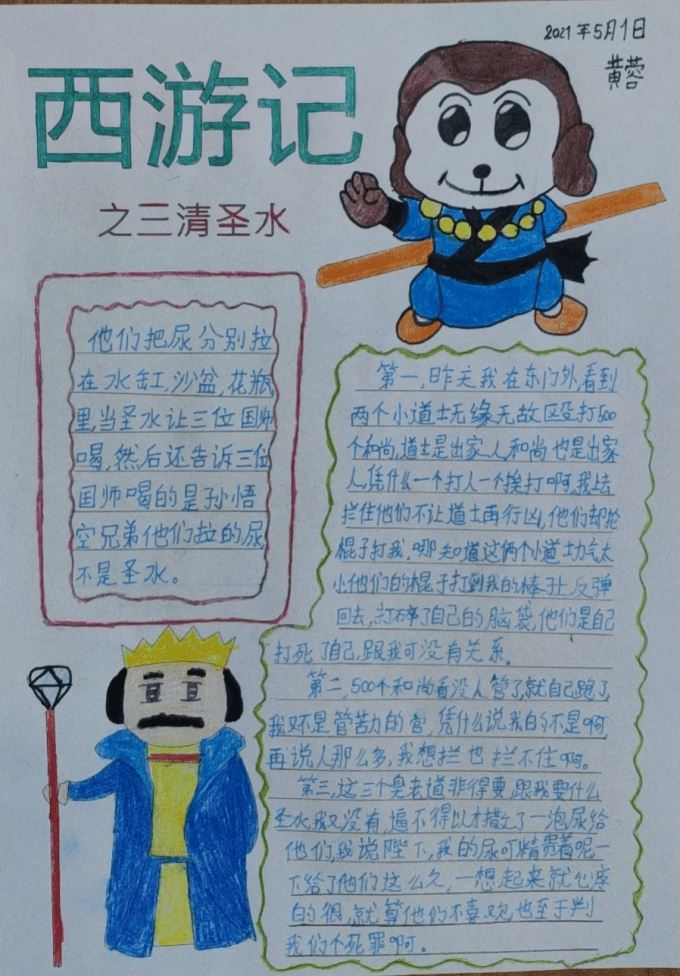 2021年5月1日
黄蓉
西游记
之三清圣水
他们把尿分别拉
在水缸,沙盆,花瓶
里,当圣水让三位国师
喝,然后还告诉三位
国师喝的是孙悟
空兄弟他们拉的尿,
不是圣水。
第一,昨天我在东门外,看到
两个小道士无缘无故殴打500
个和尚,道士是出家人,和尚也是出家
人,凭什么一个打人一个挨打啊,我上去
拦住他们不让道士再行凶,他们却抡
棍子打我,哪知道这俩个小道士力气太
小他们的棍子打到我的棒子上,反弹
回去,打碎了自己的脑袋,他们是自己
打死了自己,跟我可没有关系。
第二,500个和尚看没人管了,就自己跑了,
我又不是管苦力的官,凭什么说我的不是啊
再说人那么多,我想拦也拦不住啊。
第三,这三个臭老道非得要跟我要什么
圣水,我又没有,逼不得以才撒了一泡尿给
他们,我说陛下,我的尿可精贵着呢一
下给了他们这么久,一想起来就心疼
的很,就算他们不喜欢也至于判
我们个死罪啊。